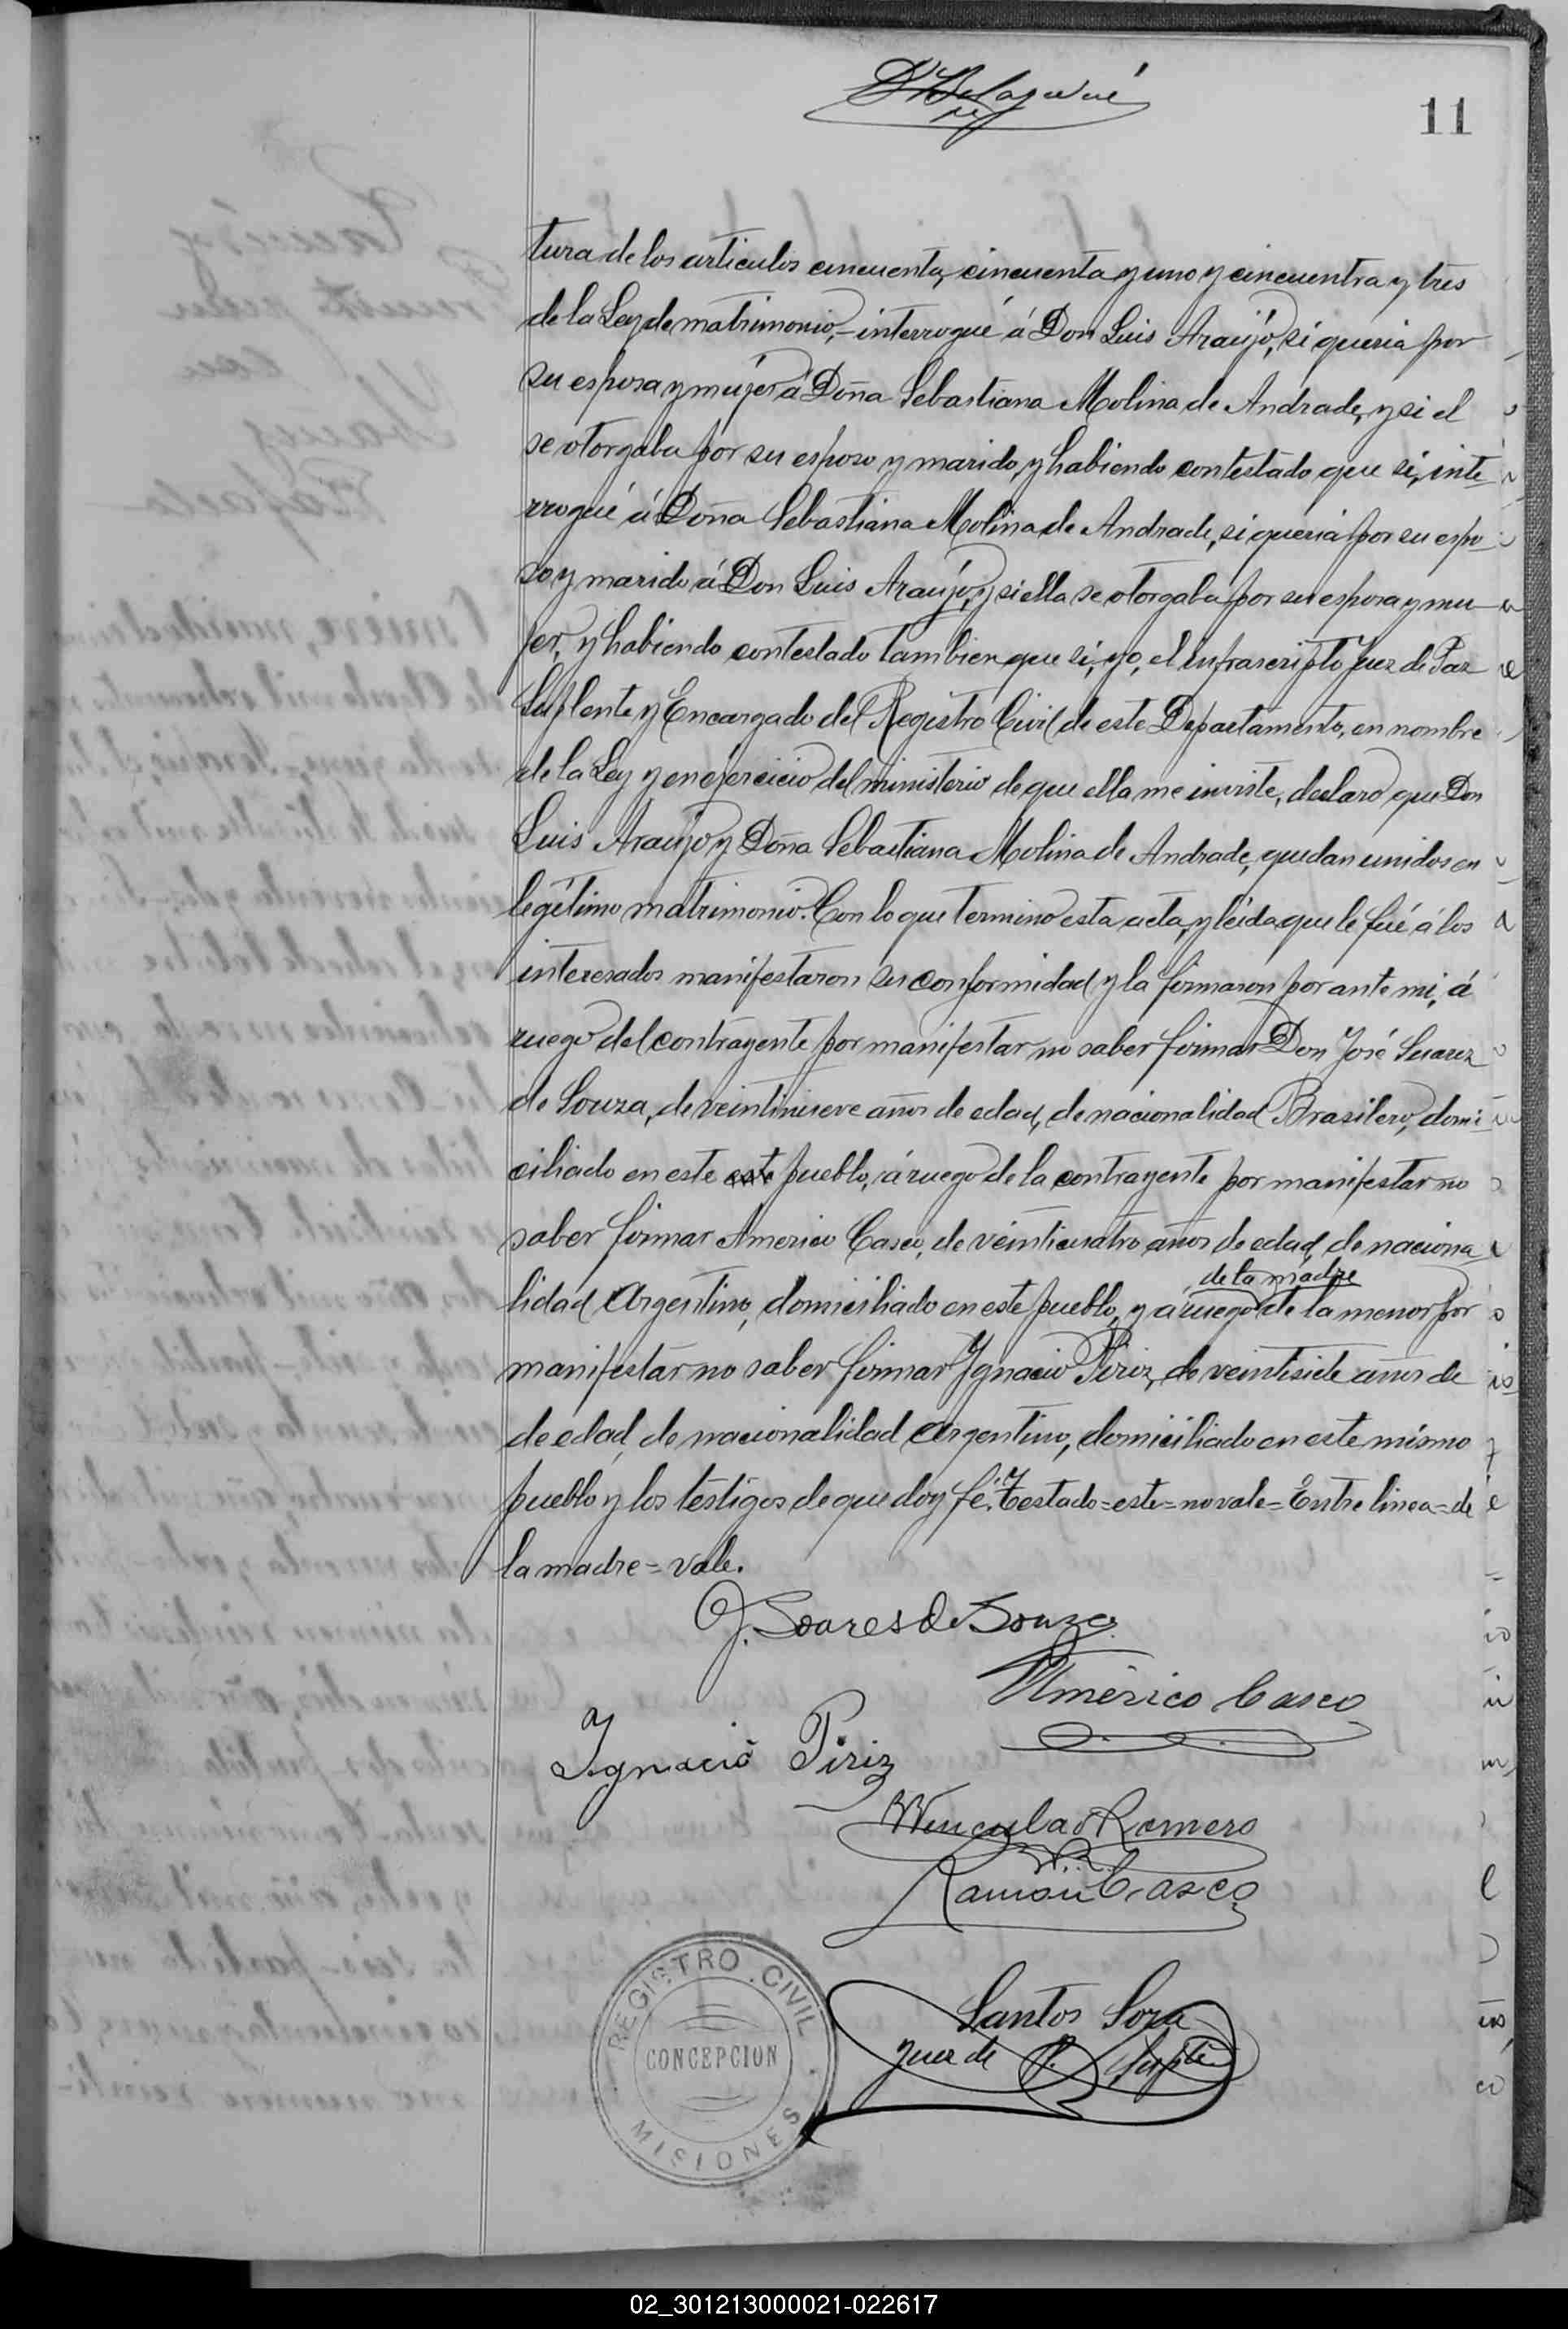 11
tura de los articulos cincuenta, cincuenta y uno y cincuentra y tres
de la Ley de matrimonio,- interrogué á Don Luis Araujo, si queria por
su esposa y mujer á Doña Sebastiana Molina de Andrade, y si el
se otorgaba por su esposo y marido, y habiendo contestado que si, inte-
rrogué á Doña Sebastiana Molina de Andrade, si queria por su espo-
so y marido á Don Luis Araujo, y si ella se otorgaba por su esposa y mu-
jer, y habiendo contestado tambien que si, yo, el infrascripto Juez de Paz
Suplente y Encargado del Registro Civil de este Departamento, en nombre
de la Ley y en ejercicio del ministerio de que ella me inviste, declaro que Don
Luis Araujo y Doña Sebastiana Molina de Andrade, quedan unidos en
legítimo matrimonio. Con lo que termino esta acta, y leida que le fué á los
interesados manifestaron su conformidad y la firmaron por ante mi, á
ruego del contrayente por manifestar no saber firmar Don José Suarez
de Souza, de veintinueve años de edad, de nacionalidad Brasilero, domi-
ciliado en este este pueblo, á ruego de la contrayente por manifestar no
saber firmar Americo Casco, de veinticuatro años de edad, de naciona-
de la madre
lidad Argentino, domiciliado en este pueblo, y á ruego de la menor por
manifestar no saber firmar Ygnacio Piriz, de veintisiete años de
de edad, de nacionalidad argentino, domiciliado en este mismo
pueblo y los testigos de que doy fé. Testado=este=no vale=Entre linea=de
la madre=vale.
J. Soares de Souza
Américo Casco
Ygnacio Piriz
Wenceslao Romero
Ramón Casco
Santos Soza
Juez de P. Suplte
REGISTRO CIVIL
CONCEPCION
MISIONES
02_301213000021-022617